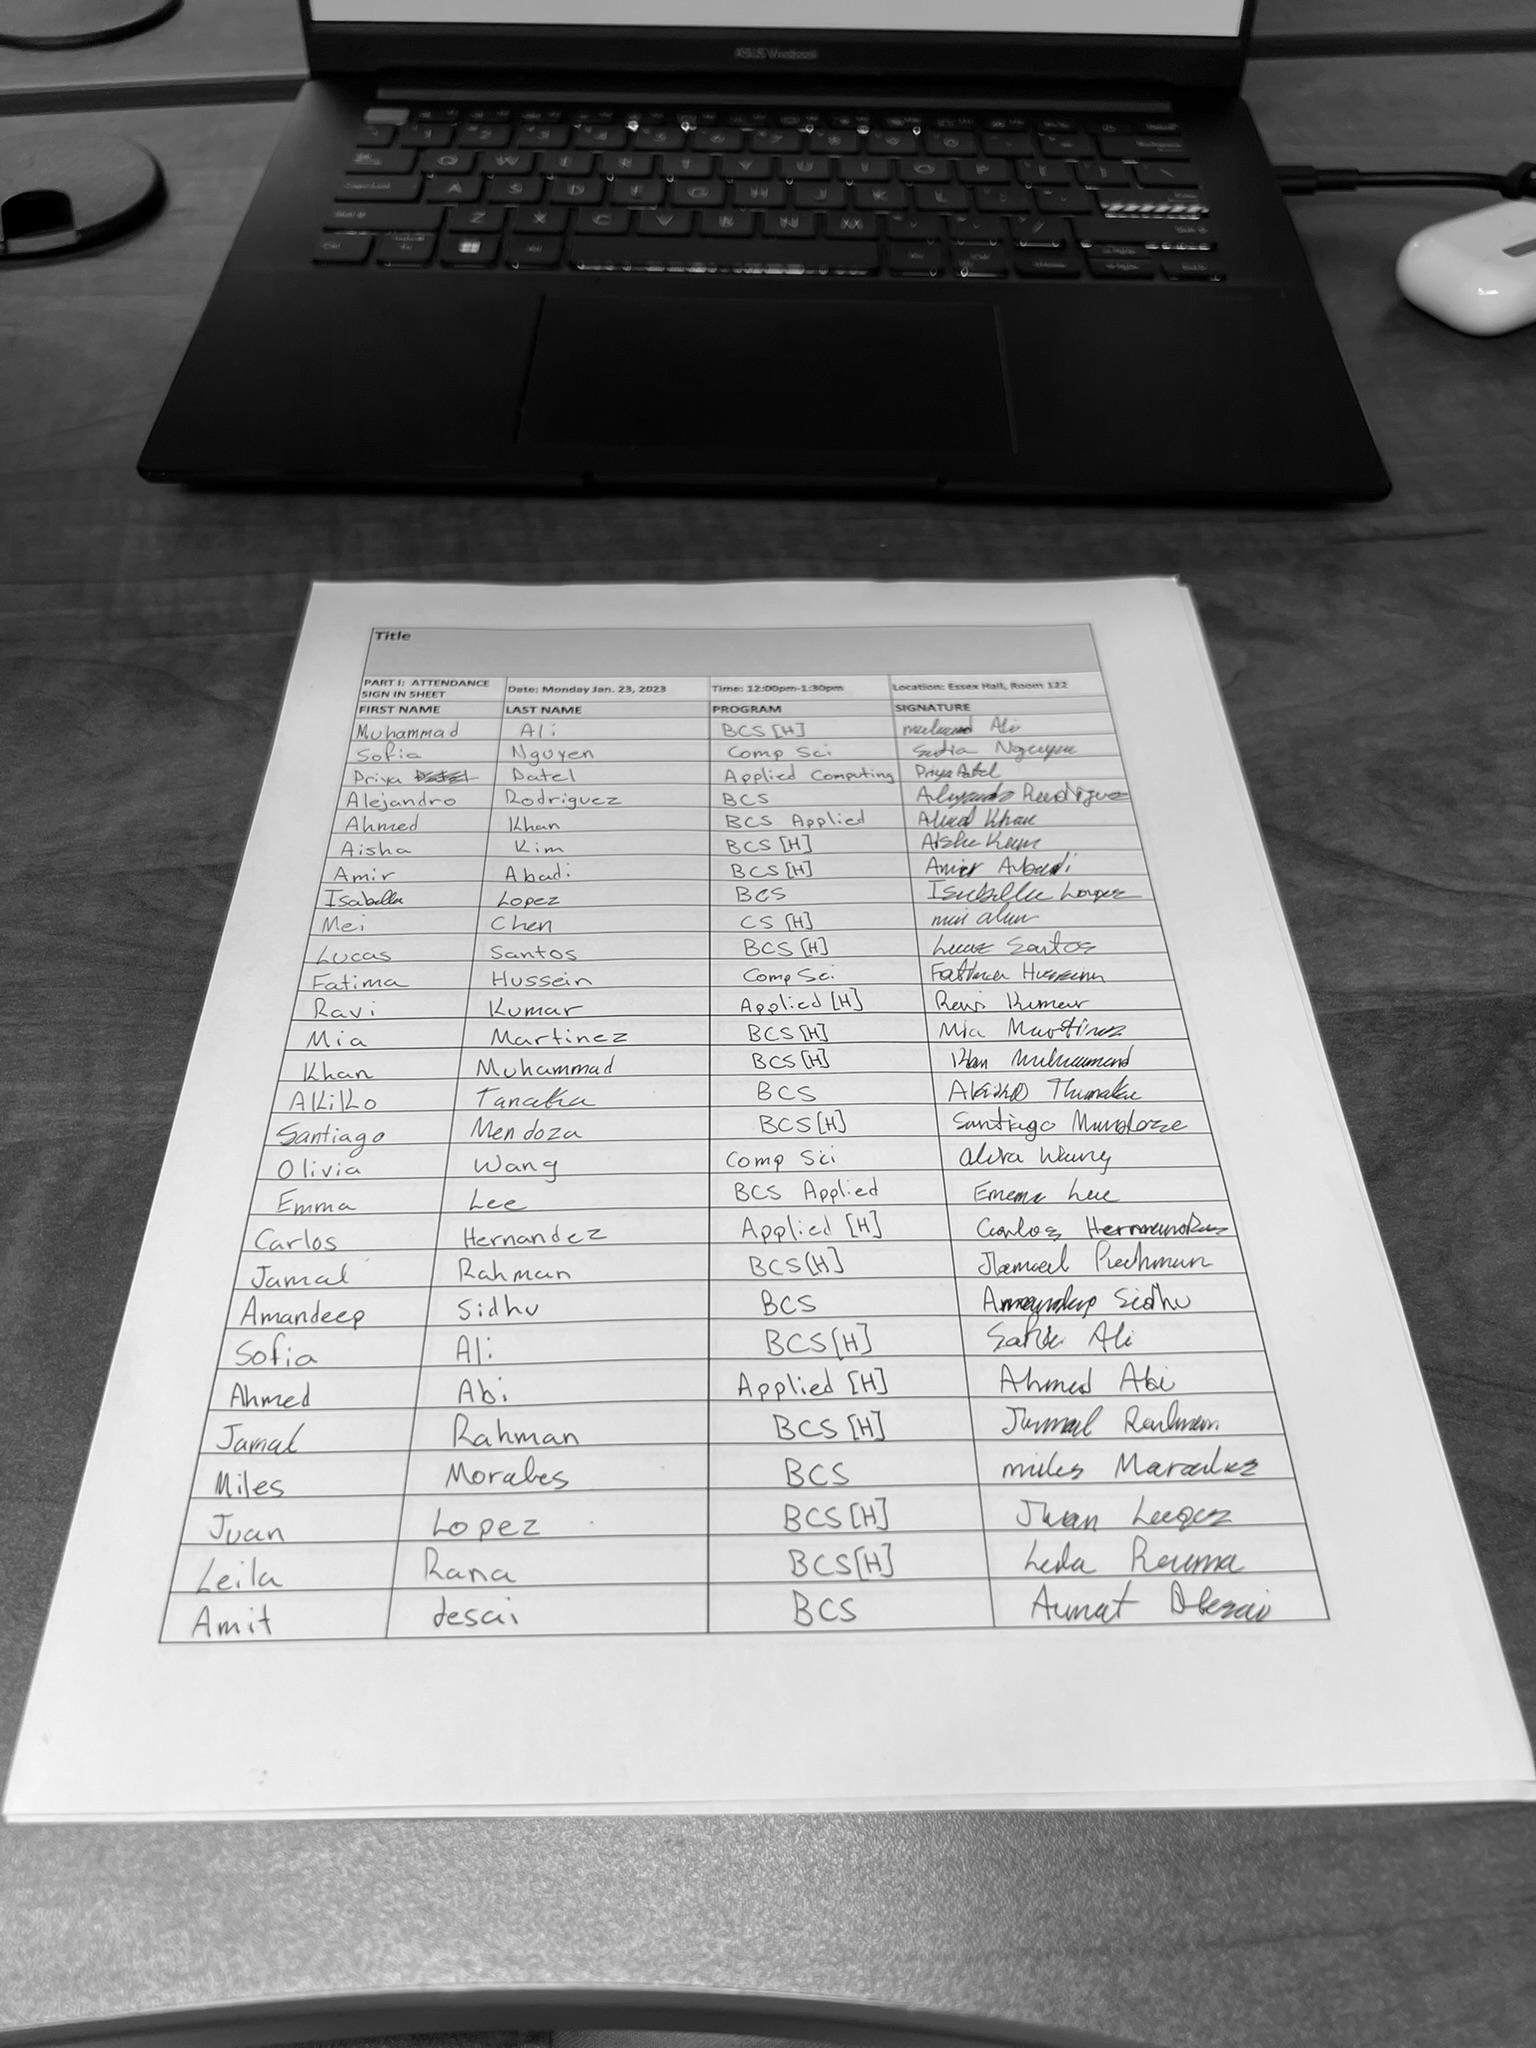 ASUS Vivobook
Title
PART I: ATTENDANCE SIGN IN SHEET Date: Monday Jan. 23, 2023 Time: 12:00pm-1:30pm Location: Essex Hall, Room 122
FIRST NAME LAST NAME PROGRAM SIGNATURE
Muhammad Ali BCS [H] Ali
Sofia Nguyen Comp Sci Nguyen
Priya Patel Applied Computing Priya Patel
Alejandro Rodriguez BCS Alejandro Rodriguez
Ahmed Khan BCS Applied Ahmed Khan
Aisha Kim BCS [H] Aisha Kim
Amir Abadi BCS [H] Amir Abadi
Isabella Lopez BCS Isabella Lopez
Mei Chen CS [H]
Lucas Santos BCS [H] Lucas Santos
Fatima Hussein Comp Sci Fatima Hussein
Ravi Kumar Applied [H] Ravi Kumar
Mia Martinez BCS [H] Mia Martinez
Khan Muhammad BCS [H] Khan Muhammad
Akiko Tanaka BCS Akiko
Santiago Mendoza BCS [H] Santiago
Olivia Wang Comp Sci Wang
Emma Lee BCS Applied Emma Lee
Carlos Hernandez Applied [H] Carlos Hernandez
Jamal Rahman BCS [H] Jamal Rahman
Amandeep Sidhu BCS Amandeep Sidhu
Sofia Ali BCS [H] Ali
Ahmed Abi Applied [H] Ahmed Abi
Jamal Rahman BCS [H] Jamal Rahman
Miles Morales BCS miles
Juan Lopez BCS [H] Juan
Leila Rana BCS [H]
Amit desai BCS